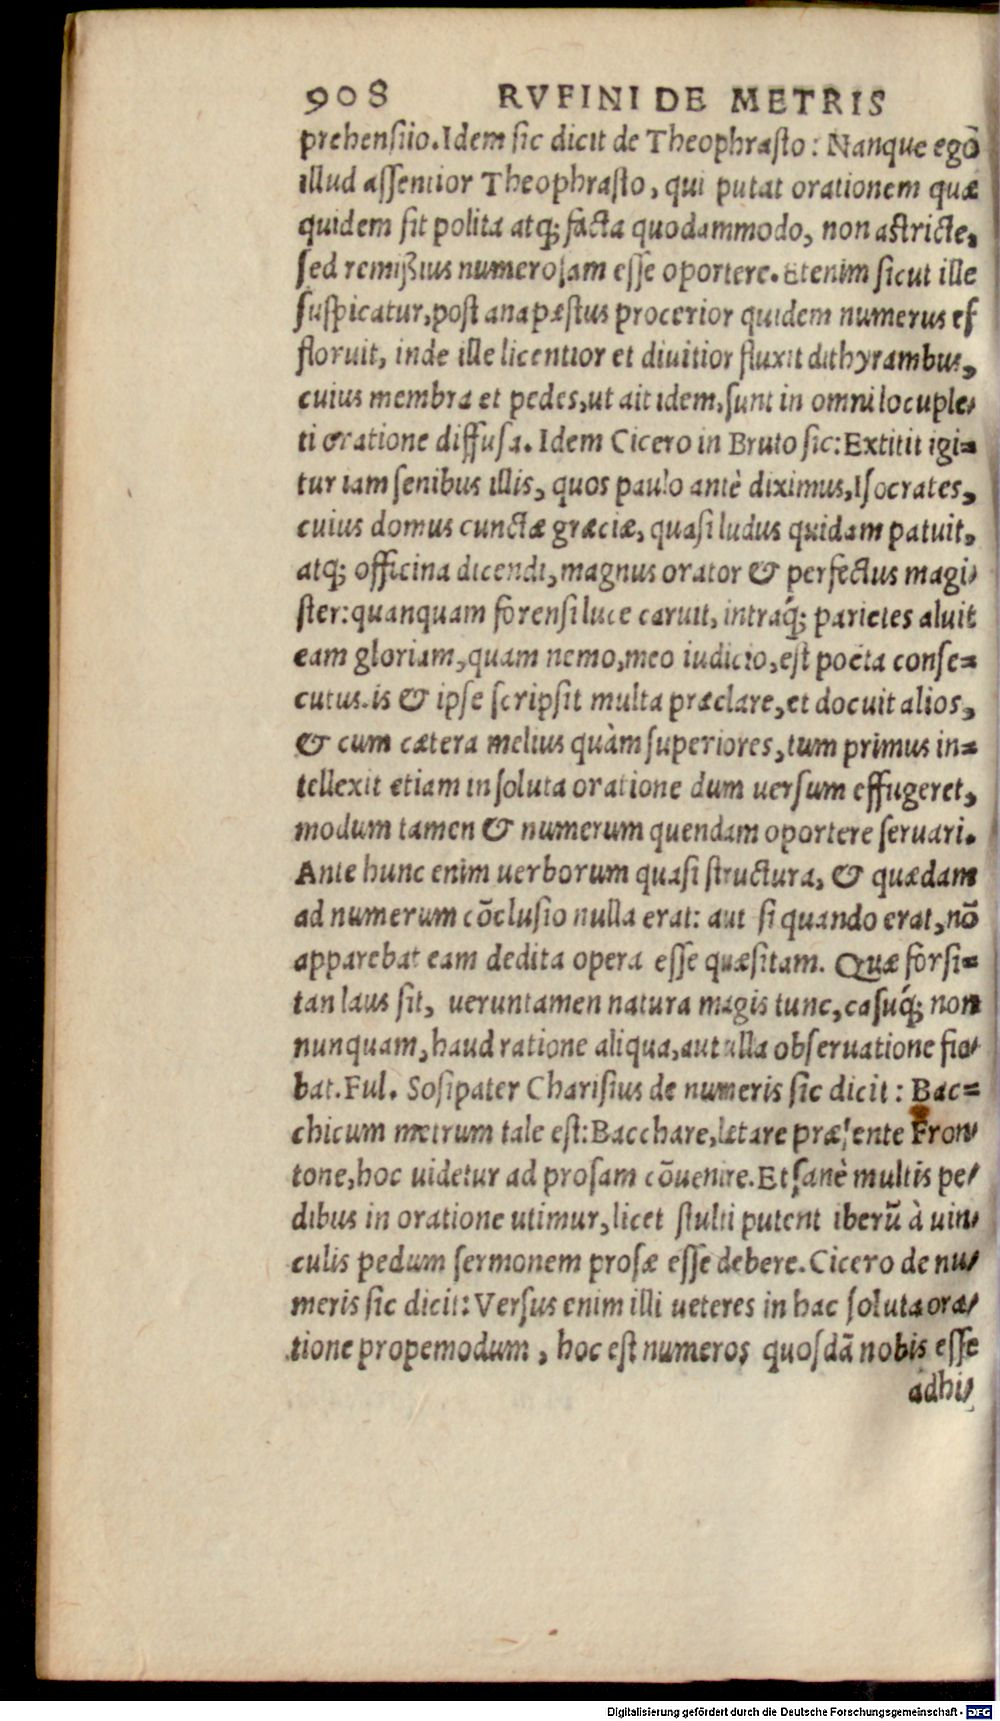 908 RVFINI DE METRIS
prehensiio. Idem sic dicit de Theophrasto: Nanque egō
illud assentior Theophrasto, qui putat orationem quæ
quidem sit polita atq; facta quodammodo, non astricte,
sed remißius numerosam esse oportere. Etenim sicut ille
suspicatur, post anapæstus procerior quidem numerus ef
floruit, inde ille licentior et divitior fluxit dithyrambus,
cuius membra et pedes, ut ait idem, sunt in omni locuple-
ti oratione diffusa. Idem Cicero in Bruto sic: Extitit igi-
tur iam senibus illis, quos paulo antè diximus, Isocrates,
cuius domus cunctæ græciæ, quasi ludus quidam patuit,
atq; officina dicendi, magnus orator & perfectus magi-
ster: quanquam forensi luce caruit, intraq́; parietes aluit
eam gloriam, quam nemo, meo iudicio, est poëta conse-
cutus. is & ipse scripsit multa præclare, et docuit alios,
& cum cætera melius quàm superiores, tum primus in-
tellexit etiam in soluta oratione dum uersum effugeret,
modum tamen & numerum quendam oportere seruari.
Ante hunc enim uerborum quasi structura, & quædam
ad numerum cōclusio nulla erat: aut si quando erat, nō
apparebat eam dedita opera esse quæsitam. Quæ forsi-
tan laus sit, ueruntamen natura magis tunc, casuq́; non
nunquam, haud ratione aliqua, aut ulla obseruatione fie-
bat. Ful. Sosipater Charisius de numeris sic dicit: Bac-
chicum metrum tale est: Bacchare, lætare præsente Fron-
tone, hoc uidetur ad prosam cōuenire. Et sanè multis pe-
dibus in oratione utimur, licet stulti putent iberū à uin-
culis pedum sermonem prosæ esse debere. Cicero de nu-
meris sic dicit: Versus enim illi ueteres in hac soluta ora-
tione propemodum, hoc est numeros quosdā nobis esse
adhi-
Digitalisierung gefördert durch die Deutsche Forschungsgemeinschaft - DFG